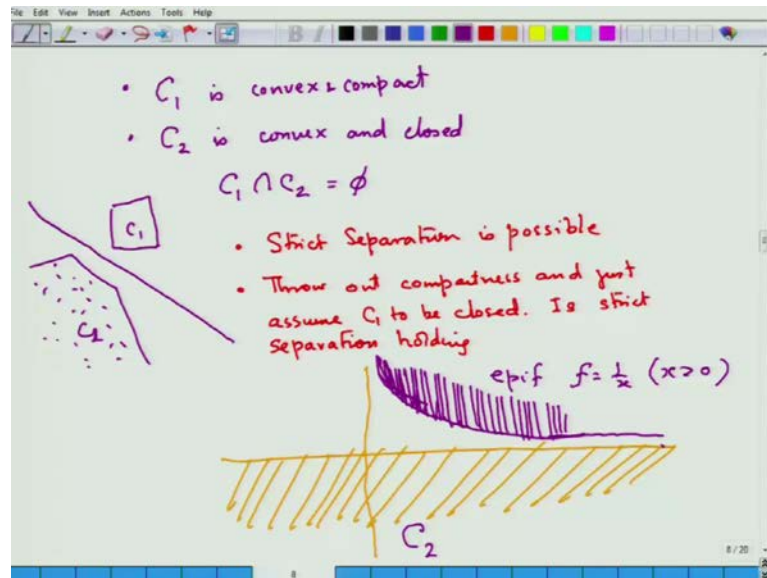 File Edit View Insert Actions Tools Help
• C₁ is convex & compact
• C₂ is convex and closed
C₁ ∩ C₂ = φ
C₁
• Strict Separation is possible
• Throw out compactness and just
assume C₁ to be closed. Is strict
separation holding
C₂
epif f = 1/x (x>0)
C₂
8/20
8